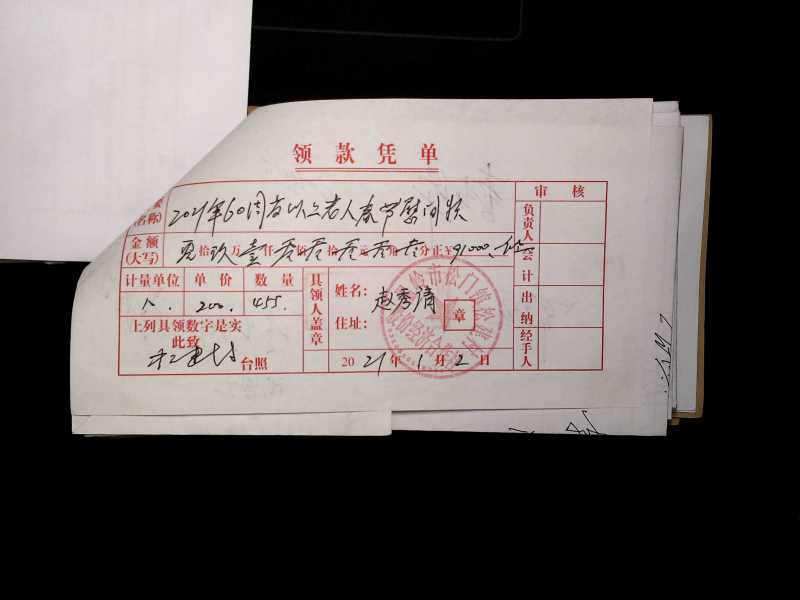 领款凭单
名称) 2021年60周岁以上老人春节慰问款
审核
金额
(大写) 拾玖万壹仟零佰零拾零元零角零分正至91000.
负责人
会计
计量单位 单价 数量
人. 200. 455.
具领人盖章
姓名: 赵秀清
住址:
章
出纳
上列具领数字是实
此致
台照
2021年1月2日
经手人
岭市松门镇